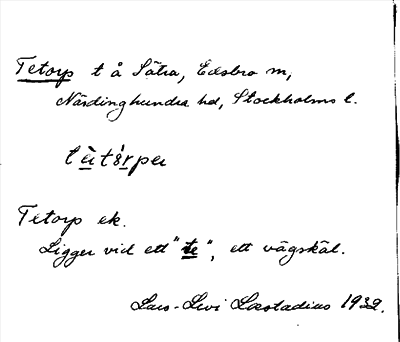 Tetorp t å Sätra, Edsbro sn,
Närdinghundra hd, Stockholms l.
Tetorp ek.
Ligger vid ett "te", ett vägskäl.
Lars-Levi Læstadius 1932.